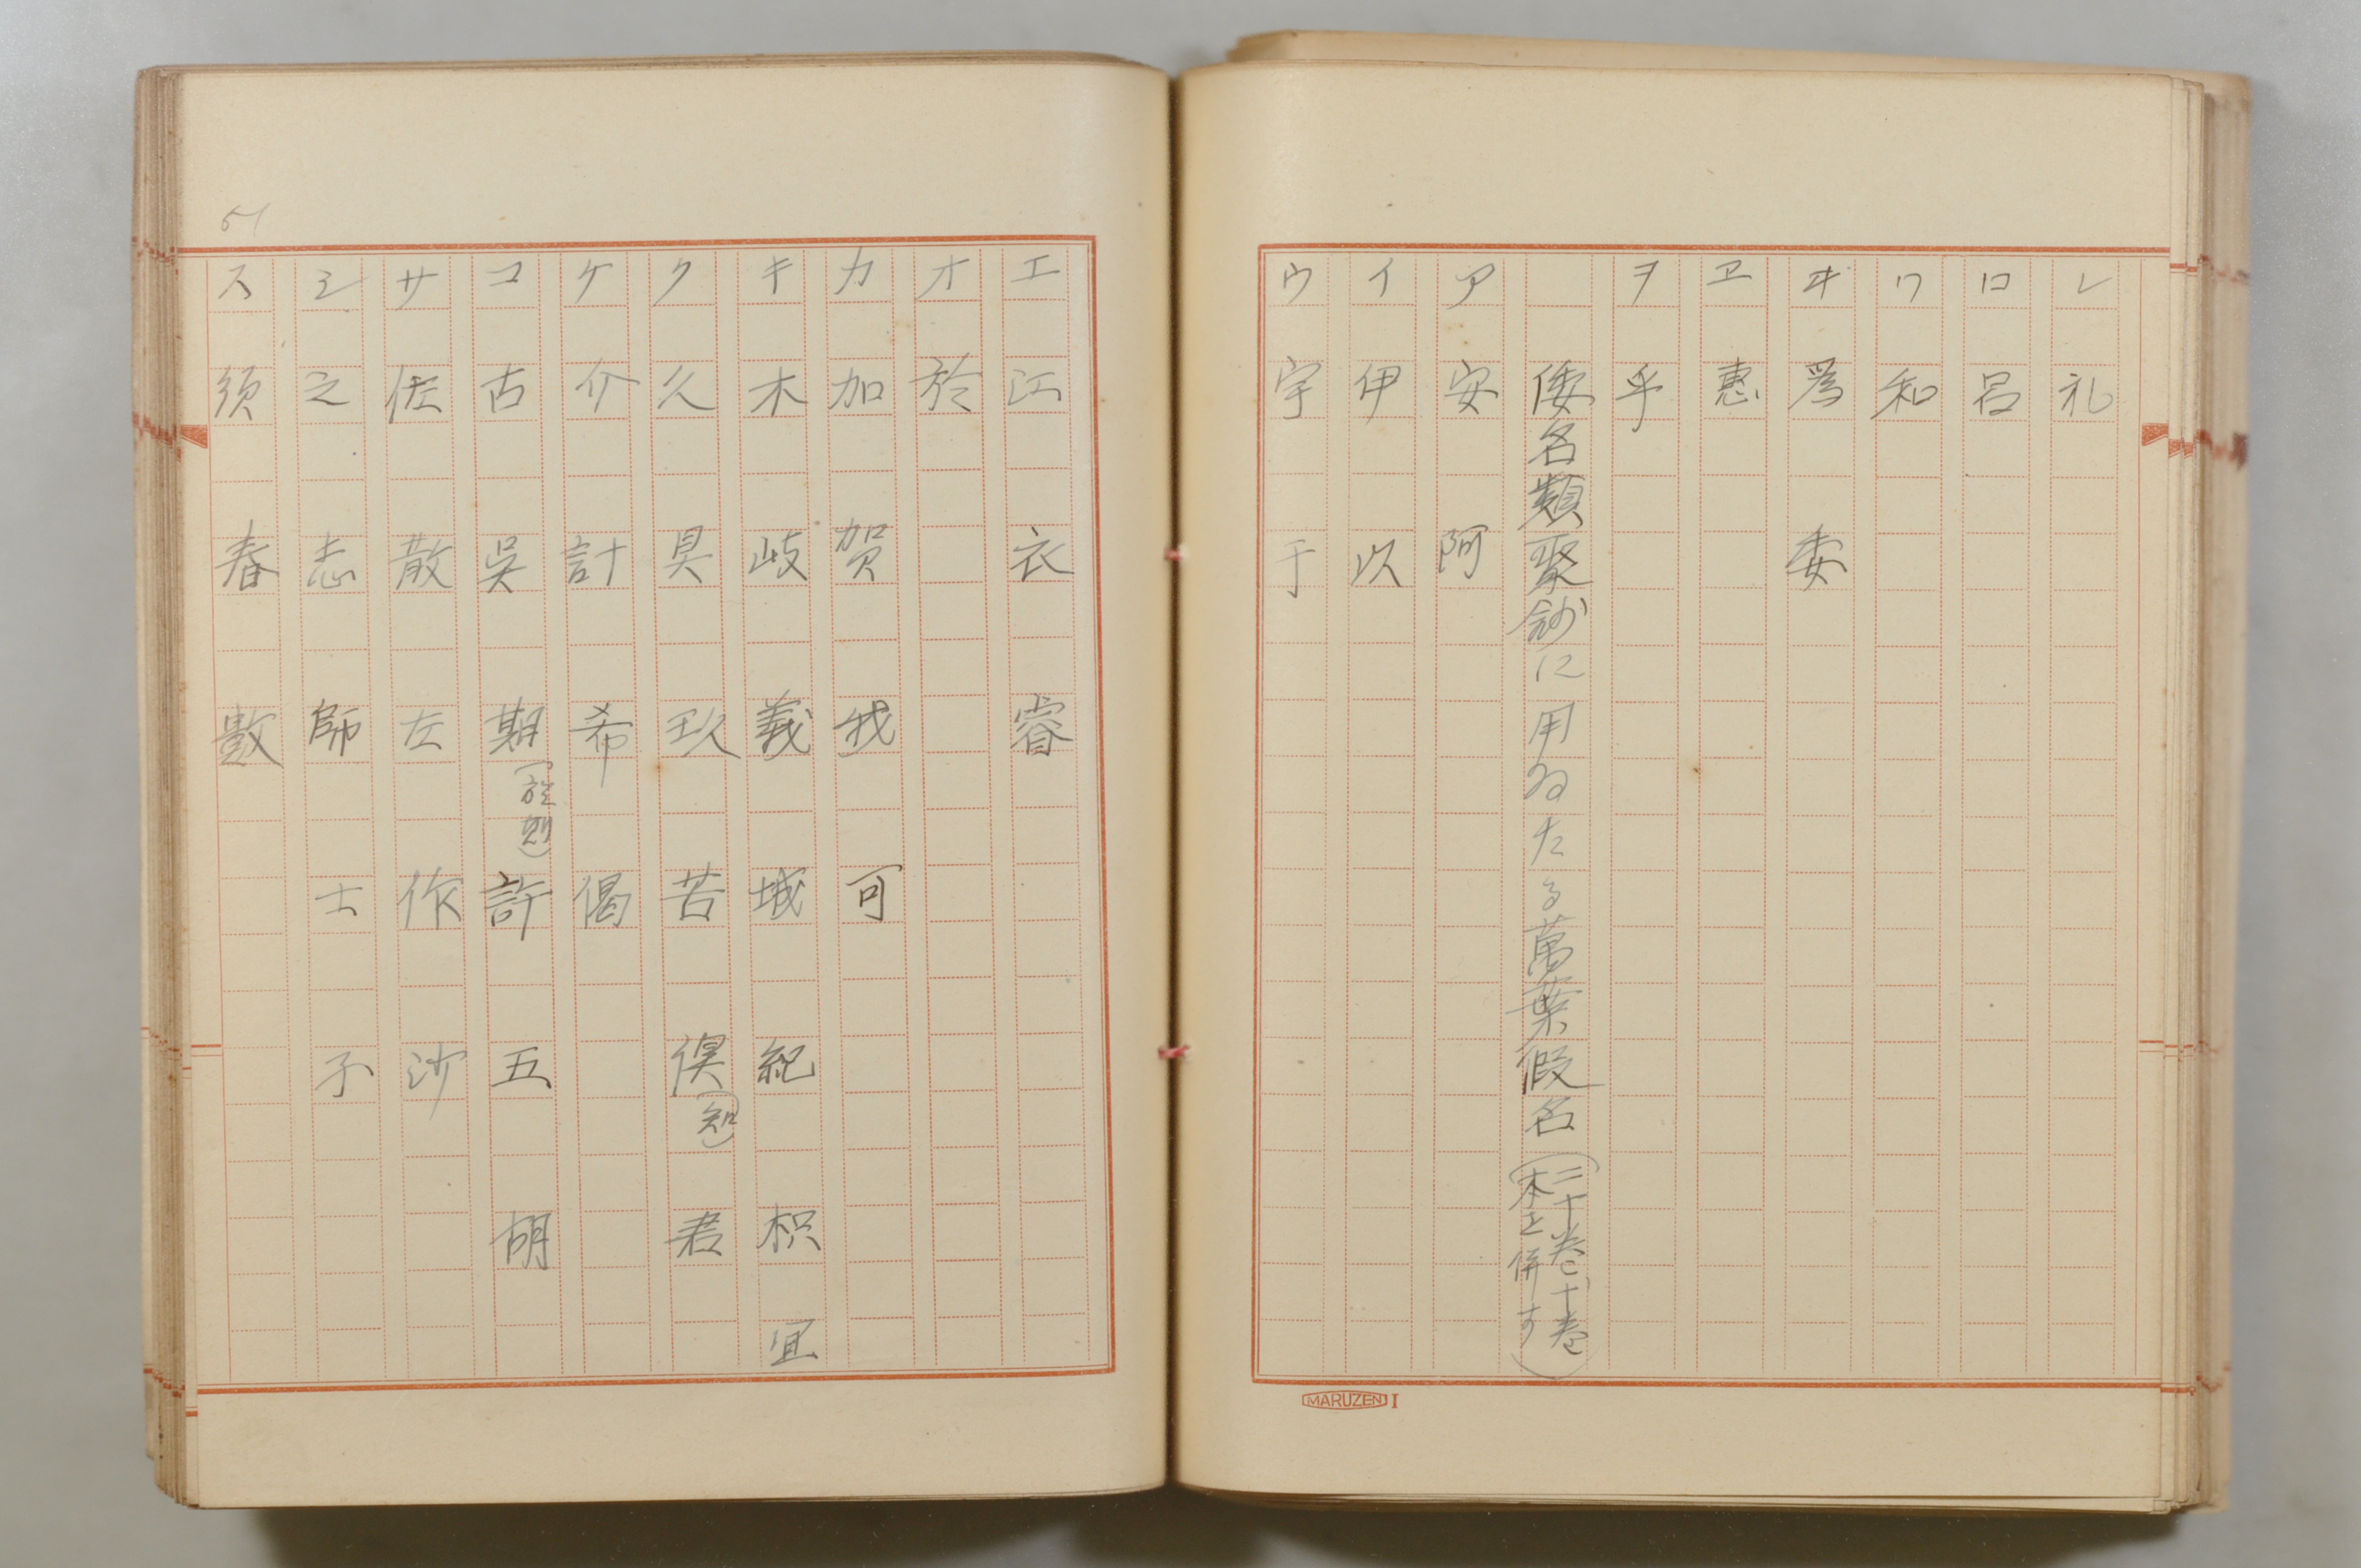 レ 礼
ロ 呂
ワ 和
ヰ 為 委
ヱ 惠
ヲ 乎
倭名類聚鈔に用ゐたる萬葉假名(二十卷と十卷本を併す)
ア 安 阿
イ 伊 以
ウ 宇 于
MARUZEN I
51
エ 江 衣 睿
オ 於
カ 加 賀 我 可
キ 木 岐 義 城 紀 枳 宜
ク 久 具 玖 苦 倶 君
ケ 介 計 希 偈
コ 古 呉 期 許 五 胡
サ 佐 散 左 作 沙
シ 之 志 師 士 子
ス 須 春 數